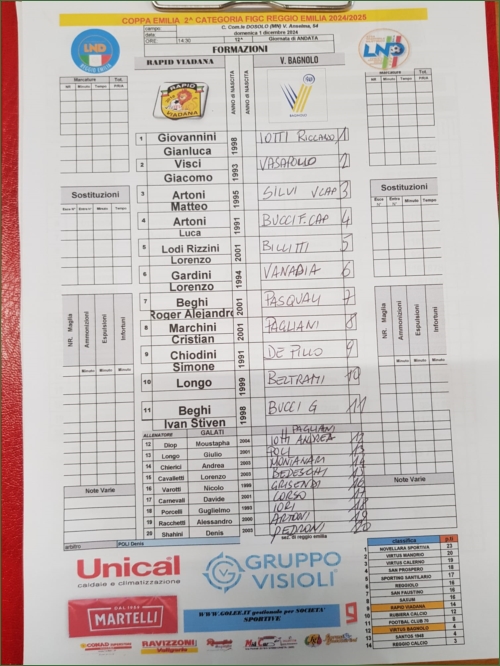 COPPA EMILIA 2^ CATEGORIA FIGC REGGIO EMILIA 2024/2025
campo: C. Com.le DOSOLO (MN) V. Anselma, 64
data domenica 1 dicembre 2024
ORE: 14:30 12^ Giornata di ANDATA
FORMAZIONI
LND
REGGIO EMILIA
RAPID VIADANA
ANNO di NASCITA
V. BAGNOLO
ANNO di NASCITA
Marcature Tot.
NR Minuto Tempo
Marcature Tot.
NR Minuto Tempo
RAPID
VIADANA
1 Giovannini Gianluca 1998 IOTTI RICCARDO 1
2 Visci Giacomo 1993 VASAPOLLO 2
3 Artoni Matteo 1995 SILVI VCAP 3
4 Artoni Luca 1991 BUCCI F. CAP 4
5 Lodi Rizzini Lorenzo 2001 BILLITTI 5
6 Gardini Lorenzo 1994 VANADIA 6
7 Beghi Roger Alejandro 2001 PASQUALI 7
8 Marchini Cristian PAGLIANI 8
9 Chiodini Simone 1991 DE PILLO 9
10 Longo 1999 BELTRAMI 10
11 Beghi Ivan Stiven 1998 BUCCI G 11
Sostituzioni
Esce N° Entra N° Minuto Tempo
Sostituzioni
Esce N° Entra N° Minuto Tempo
NR. Maglia Ammonizioni Espulsioni Infortuni
Minuto Minuto Minuto
NR. Maglia Ammonizioni Espulsioni Infortuni
Minuto Minuto Minuto
ALLENATORE GALATI PAGLIANI
12 Diop Moustapha 2004 IOTTI ANDREA 12
13 Longo Giulio 2001 POLI 13
14 Chierici Andrea 2003 MONTANARI 14
15 Cavalletti Lorenzo 2003 BEDESCHI 15
16 Varotti Nicolo GRISENDI 16
17 Carnevali Davide 2001 CORSO 17
18 Porcelli Guglielmo IORI 18
19 Racchetti Alessandro ARTONI 19
20 Shahini Denis PEDRONI 20
Note Varie
Note Varie
arbitro POLI Denis sez. di reggio emilia
Unical
calidaie e climatizzazione
GRUPPO
VISIOLI
DAL 1959
MARTELLI
WWW.GOLEE.IT gestionale per SOCIETA' SPORTIVE
CORAD
RAVIZZONI
classifica p.ti
1 NOVELLARA SPORTIVA 23
2 VIRTUS MANDRIO 20
3 VIRTUS CALERNO 19
4 SAN PROSPERO 18
5 SPORTING SANTILARIO 17
6 REGGIOLO 16
7 SAN FAUSTINO 16
8 SAXUM 16
9 RAPID VIADANA 14
10 RUBIERA CALCIO 12
11 FOOTBAL CLUB 70 12
12 VIRTUS BAGNOLO 10
13 SANTOS 1948 4
14 REGGIO CALCIO 3